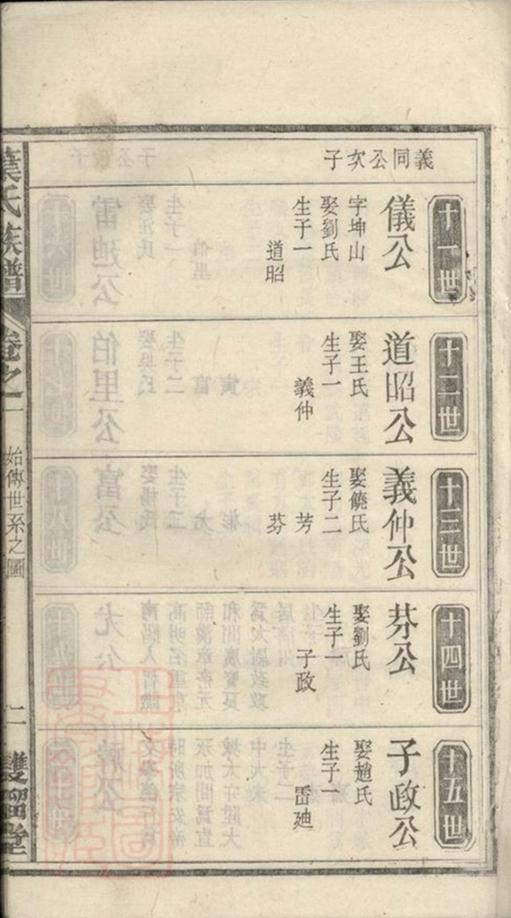 義同公次子
十一世
儀公
字坤山
娶劉氏
生子一
道昭
十二世
道昭公
娶王氏
生子一
義仲
十三世
義仲公
娶饒氏
生子二
芳
芬
十四世
芬公
娶劉氏
生子一
子政
十五世
子政公
娶趙氏
生子一
雷廸
葉氏族譜
卷之一
始傳世系之圖
二
雙溜堂